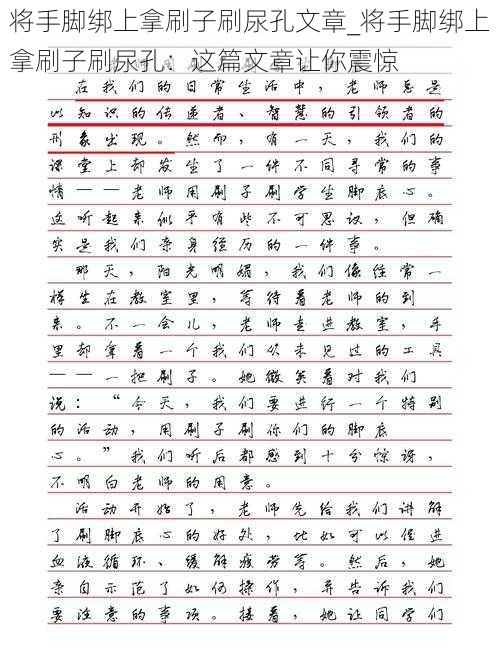 将手脚绑上拿刷子刷尿孔文章_将手脚绑上
拿刷子刷尿孔：这篇文章让你震惊
在我们的日常生活中，老师总是
以知识的传递者、智慧的引领者的
形象出现。然而，有一天，我们的
课堂上却发生了一件不同寻常的事
情——老师用刷子刷学生脚底心。
这听起来似乎有些不可思议，但确
实是我们亲身经历的一件事。
那天，阳光明媚，我们像往常一
样坐在教室里，等待着老师的到
来。不一会儿，老师走进教室，手
里却拿着一个我们从未见过的工具
——一把刷子。她微笑着对我们
说：“今天，我们要进行一个特别
的活动，用刷子刷你们的脚底
心。”我们听后都感到十分惊讶，
不明白老师的用意。
活动开始了，老师先给我们讲解
了刷脚底心的好处，比如可以促进
血液循环、缓解疲劳等。然后，她
亲自示范了如何操作，并告诉我们
要注意的事项。接着，她让同学们